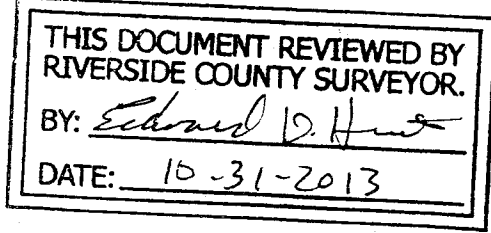 THIS DOCUMENT REVIEWED BY
RIVERSIDE COUNTY SURVEYOR.
BY: Edward D. Hunt
DATE: 10-31-2013